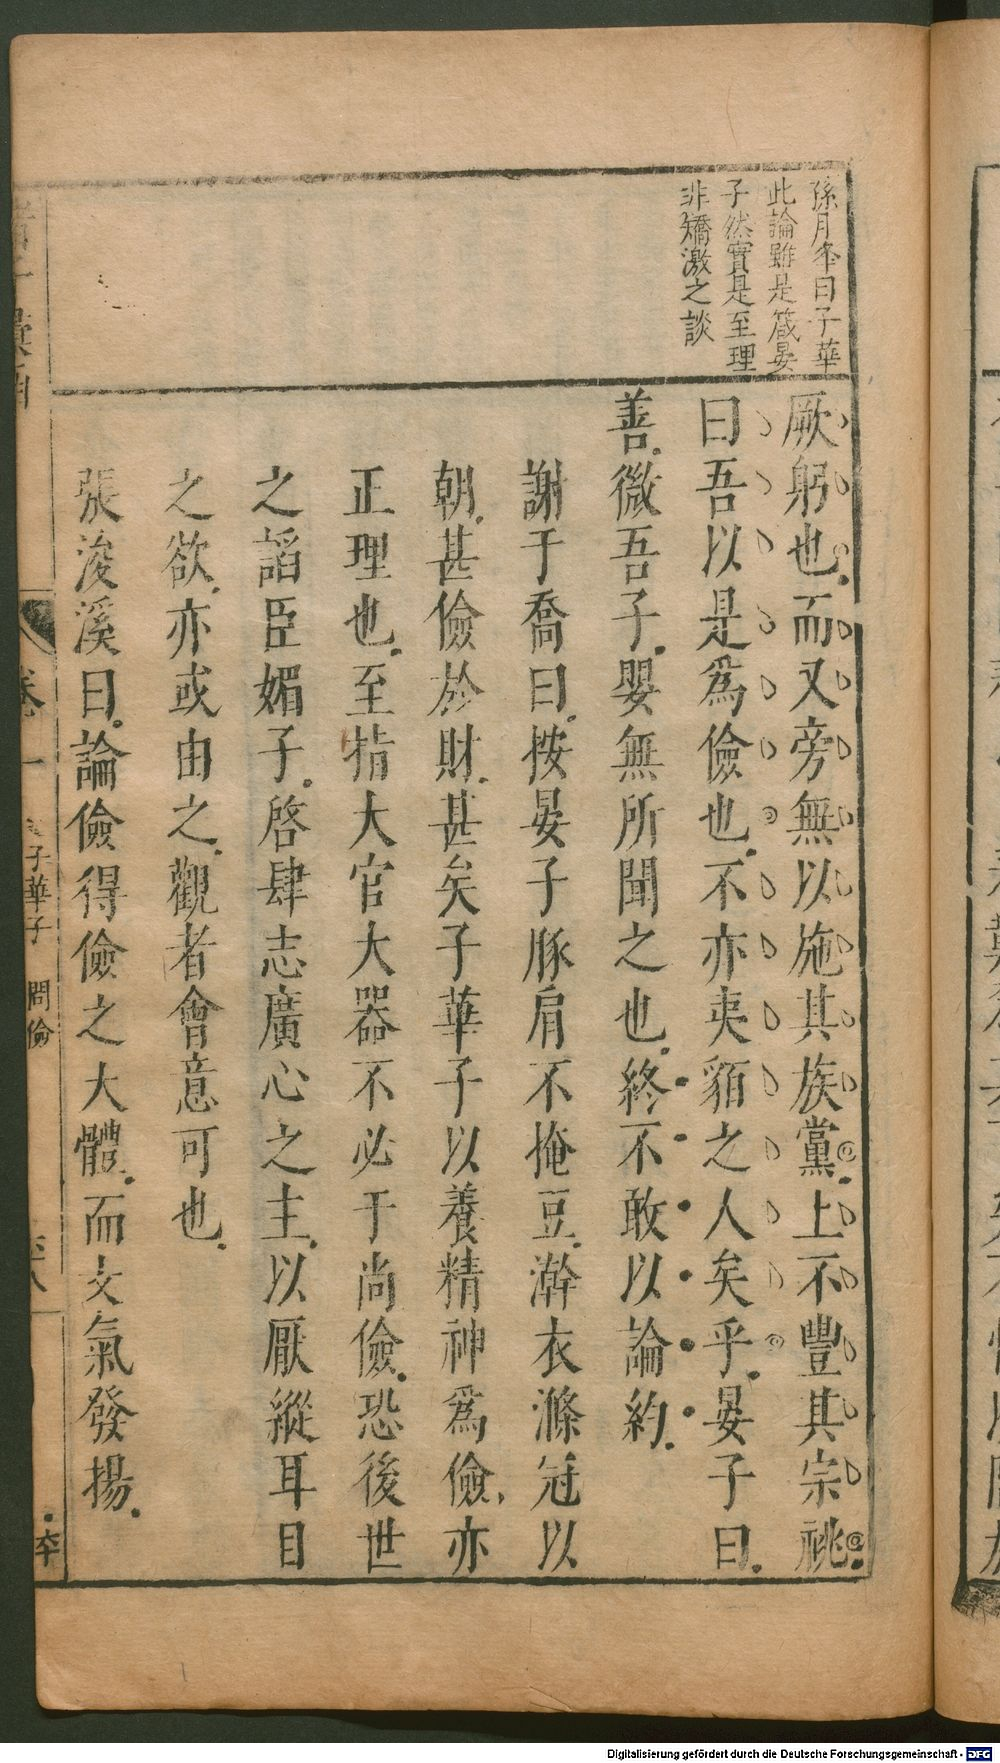 孫月峯曰子華
此論雖是箴晏
子然實是至理
非矯激之談
厥躬也而又旁無以施其族黨上不豐其宗祧
曰吾以是爲儉也不亦夷貊之人矣乎晏子曰
善微吾子嬰無所聞之也終不敢以論約
謝于喬曰按晏子豚肩不掩豆澣衣滌冠以
朝甚儉於財甚矣子華子以養精神爲儉亦
正理也至指大官大器不必于尚儉恐後世
之謟臣媚子啓肆志廣心之主以厭縱耳目
之欲亦或由之觀者會意可也
張浚溪曰論儉得儉之大體而文氣發揚
卷一
子華子 問儉
Digitalisierung gefördert durch die Deutsche Forschungsgemeinschaft - DFG